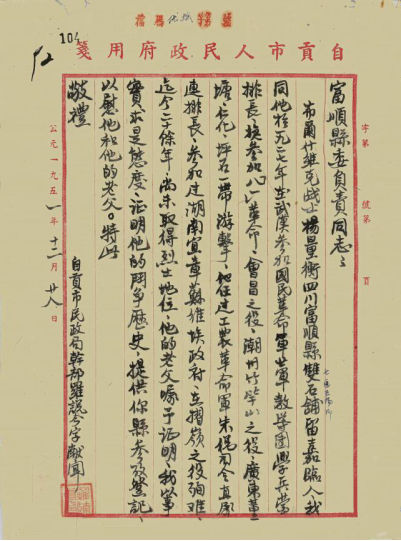 104
自貢市人民政府用箋
字第 號第 頁
富順縣委負責同志：
布爾什維克战士楊量衡四川富順縣雙石鋪留嘉臨人我
同他於一九二七年在武漢參加國民革命軍廿軍教導團學兵營
排長後參加八一革命，會昌之役，潮州竹竿山之役，廣東
塘、仁化、坪石一帶游擊，他任过工農革命軍朱德司令直属
連排長，參加过湖南宜章蘇維埃政府，在摺嶺之役殉难、
迄今二十餘年，尚未取得烈士地位，他的老父囑予证明，我當
實求是態度，证明他的鬥争歷史，提供你縣參攷登記，
以慰他和他的老父。特此
敬禮
自貢市民政局幹部羅說今字獻聞
公元一九五一年十二月廿八日